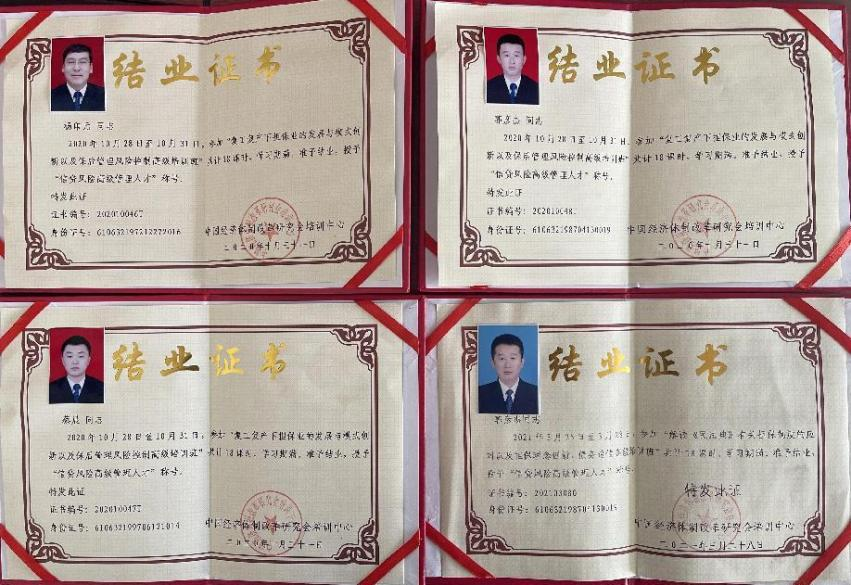 结业证书
同志
2020年10月28日至10月31日，参加“复工复产下担保业的发展与模式创
新以及保后管理风险控制高级培训班”共计18课时，学习期满，准予结业，授予
“信贷风险高级管理人才”称号。
特发此证
证书编号：2020100467
身份证号：610632197212272016
中国经济体制改革研究会培训中心
二〇二〇年十月三十一日
结业证书
同志
2020年10月28日至10月31日，参加“复工复产下担保业的发展与模式创
新以及保后管理风险控制高级培训班”共计18课时，学习期满，准予结业，授予
“信贷风险高级管理人才”称号。
特发此证
证书编号：202010048
身份证号：610632198704130019
中国经济体制改革研究会培训中心
结业证书
同志
2020年10月28日至10月31日，参加“复工复产下担保业的发展与模式创
新以及保后管理风险控制高级培训班”共计18课时，学习期满，准予结业，授予
“信贷风险高级管理人才”称号。
特发此证
证书编号：2020100477
身份证号：610632199706121014
中国经济体制改革研究会培训中心
结业证书
同志
2021年3月 参加“解读《民法典》有关担保制度的应
共计18课时，学习期满，准予结业，
授予“信贷风险高级管理人才”称号。
特发此证
证书编号：202103080
身份证号：610632198704130019
中国经济体制改革研究会培训中心
二〇二一年三月二十八日